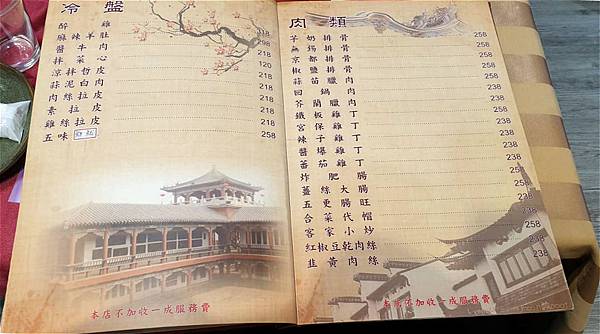 冷盤
醉雞 318
麻辣牛肚 298
醬牛肉 218
拌菜心 120
涼拌哲皮 218
蒜泥白肉 218
肉絲拉皮 218
素拉皮 218
雞絲拉皮 218
五味 258
本店不加收一成服務費
肉類
芋奶排骨 258
無錫排骨 258
京都排骨 258
椒鹽排骨 258
蒜苗臘肉 258
回鍋肉 238
芥蘭臘肉 258
鐵板雞丁 238
宮保雞丁 238
辣子雞丁 238
醬爆雞丁 238
蕃茄雞丁 238
炸肥腸 258
薑絲大腸 258
五更腸旺 258
合菜代帽 258
客家小炒 258
紅椒豆乾肉絲 238
韭黃肉絲 238
本店不加收一成服務費